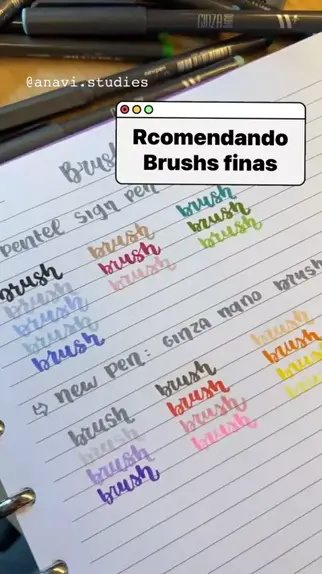 GINZA
@anavi.studies
Rcomendando
Brushs finas
Brush
Pentel sign pen
brush brush brush
brush brush brush
brush brush brush
brush
brush
↳ new pen: Ginza nano brush
brush brush brush
brush brush brush
brush brush brush
brush brush